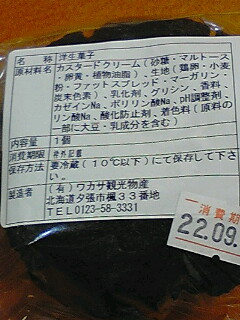 名 称 洋生菓子
原材料名 カスタードクリーム(砂糖・マルトース
・卵黄・植物油脂)、生地(鶏卵・小麦
粉・ファットスプレッド・マーガリン・
炭末色素)、乳化剤、グリシン、香料、
カゼインNa、ポリリン酸Na、pH調整剤、
リン酸Na、酸化防止剤、着色料(原料の
一部に大豆・乳成分を含む)
内容量 1個
消費期限 枠外記載
保存方法 要冷蔵(10℃以下)にて保存して下さ
い。
製造者 (有)ワカサ観光物産
北海道夕張市楓33番地
TEL0123-58-3331
消費期
22.09.